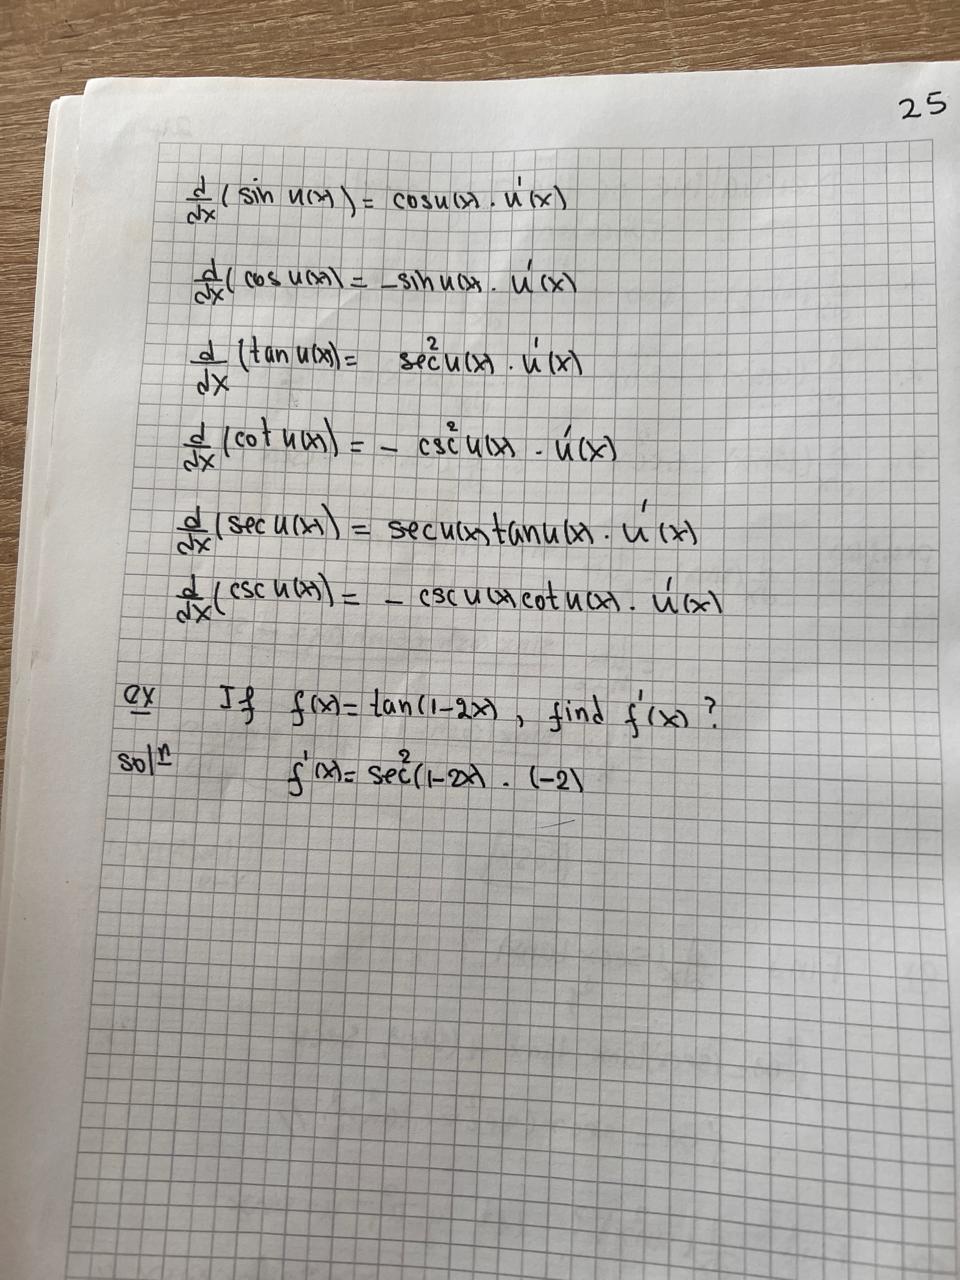 25
d/dx (sin u(x)) = cos u(x) . u'(x)
d/dx (cos u(x)) = - sin u(x) . u'(x)
d/dx (tan u(x)) = sec² u(x) . u'(x)
d/dx (cot u(x)) = - csc² u(x) . u'(x)
d/dx (sec u(x)) = sec u(x) tan u(x) . u'(x)
d/dx (csc u(x)) = - csc u(x) cot u(x) . u'(x)
ex If f(x) = tan(1-2x) , find f'(x) ?
solⁿ f'(x) = sec²(1-2x) . (-2)